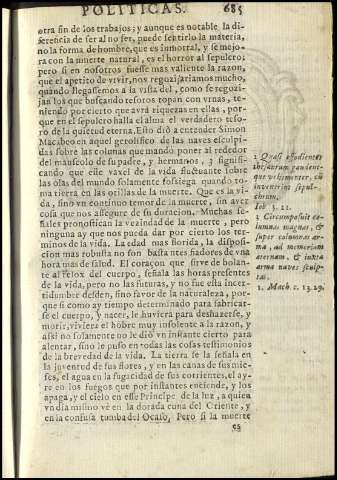 POLITICAS. 685
otra sin de los trabajos; y aunque es notable la di-
ferencia de ser al no ser, puede sentirlo la materia,
no la forma de hombre, que es inmortal, y se mejo-
ra con la muerte natural, es el horror al sepulcro;
pero si en nosotros fuesse mas valiente la razon,
que el apetito de vivir, nos regozijariamos mucho,
quando llegassemos a la vista del, como se regozi-
jan los que buscando tesoros topan con vrnas, te-
niendo por cierto que avrá riquezas en ellas, por-
que en el sepulcro halla el alma el verdadero teso-
ro de la quietud eterna. Esto diò a entender Simon
Macabeo en aquel geroglifico de las naves esculpi-
das sobre las colunas que mandò poner al rededor
del mausoleo de su padre, y hermanos, 3 signifi-
cando que este vaxel de la vida fluctuante sobre
las olas del mundo solamente sossiega quando to-
ma tierra en las orillas de la muerte. Que es la vi-
da, sinò vn continuo temor de la muerte, sin aver
cosa que nos assegure de su duracion. Muchas se-
ñales pronostican la vezindad de la muerte, pero
ninguna ay que nos pueda dar por cierto los ter-
minos de la vida. La edad mas florida, la disposi-
cion mas robusta no son bastantes fiadores de vna
hora mas de salud. El coraçon que sirve de bolan-
te al relox del cuerpo, señala las horas presentes
de la vida, pero no las futuras, y no fue esta incer-
tidumbre desden, sino favor de la naturaleza, por-
que si como ay tiempo determinado para fabricar-
se el cuerpo, y nacer, le huviera para deshazerse, y
morir, viviera el hõbre muy insolente a la razon, y
assi no solamente no le diò vn instante cierto para
alentar, sino le puso en todas las cosas testimonios
de la brevedad de la vida. La tierra se la señala en
la juventud de sus flores, y en las canas de sus mie-
ses, el agua en la fugacidad de sus corrientes, el ay-
re en los fuegos que por instantes enciende, y los
apaga, y el cielo en esse Principe de la luz, a quien
vn dia mismo vè en la dorada cuna del Oriente, y
en la confusa tumba del Ocaso. Pero si la muerte
es
2 Quasi effodientes
thesaurum gaudent-
que vehementer, cũ
invenerint sepul-
chrum.
Iob 3. 21.
3 Circumposuit co-
lumnas magnas, &
super columnas ar-
ma, ad memoriam
æternam, & iuxta
arma naves sculp-
tas.
1. Mach. c. 13. 29.